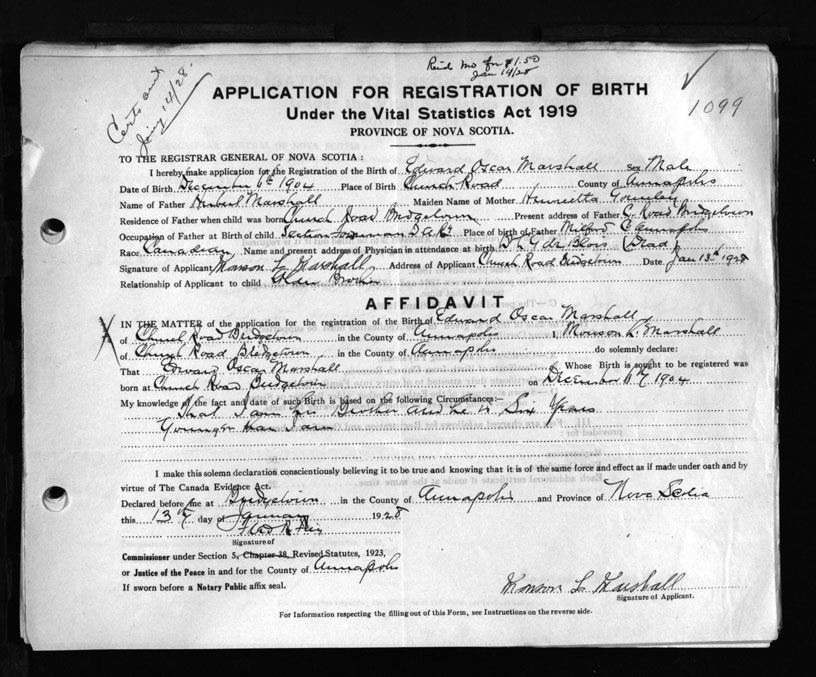 Certs out
Jany 14/28.
Rec'd Mo for $1.50
Jan 14/28
1099
APPLICATION FOR REGISTRATION OF BIRTH
Under the Vital Statistics Act 1919
PROVINCE OF NOVA SCOTIA.
TO THE REGISTRAR GENERAL OF NOVA SCOTIA:
I hereby make application for the Registration of the Birth of Edward Oscar Marshall Sex Male
Date of Birth December 6th 1904 Place of Birth Church Road County of Annapolis
Name of Father Herbert Marshall Maiden Name of Mother Henrietta
Residence of Father when child was born Church Road Bridgetown Present address of Father C. Road Bridgetown
Occupation of Father at Birth of child Section foreman D A Ry Place of birth of Father Milford Annapolis
Race Canadian Name and present address of Physician in attendance at birth (Dead)
Signature of Applicant Monson L. Marshall Address of Applicant Church Road Bridgetown Date Jan 13th 1928
Relationship of Applicant to child Older Brother
AFFIDAVIT
IN THE MATTER of the application for the registration of the Birth of Edward Oscar Marshall
of Church Road Bridgetown in the County of Annapolis I, Monson L. Marshall
of Church Road, Bridgetown in the County of Annapolis do solemnly declare:
That Edward Oscar Marshall Whose Birth is sought to be registered was
born at Church Road Bridgetown on December 1904
My knowledge of the fact and date of such Birth is based on the following Circumstances:—
That I am his Brother and he is Six Years
Younger than I am
I make this solemn declaration conscientiously believing it to be true and knowing that it is of the same force and effect as if made under oath and by
virtue of The Canada Evidence Act.
Declared before me at Bridgetown in the County of Annapolis and Province of Nova Scotia
this 13th day of January 1928
Signature of
Commissioner under Section 5, Chapter 38, Revised Statutes, 1923,
or Justice of the Peace in and for the County of Annapolis
If sworn before a Notary Public affix seal.
Monson L. Marshall
Signature of Applicant.
For Information respecting the filling out of this Form, see Instructions on the reverse side.